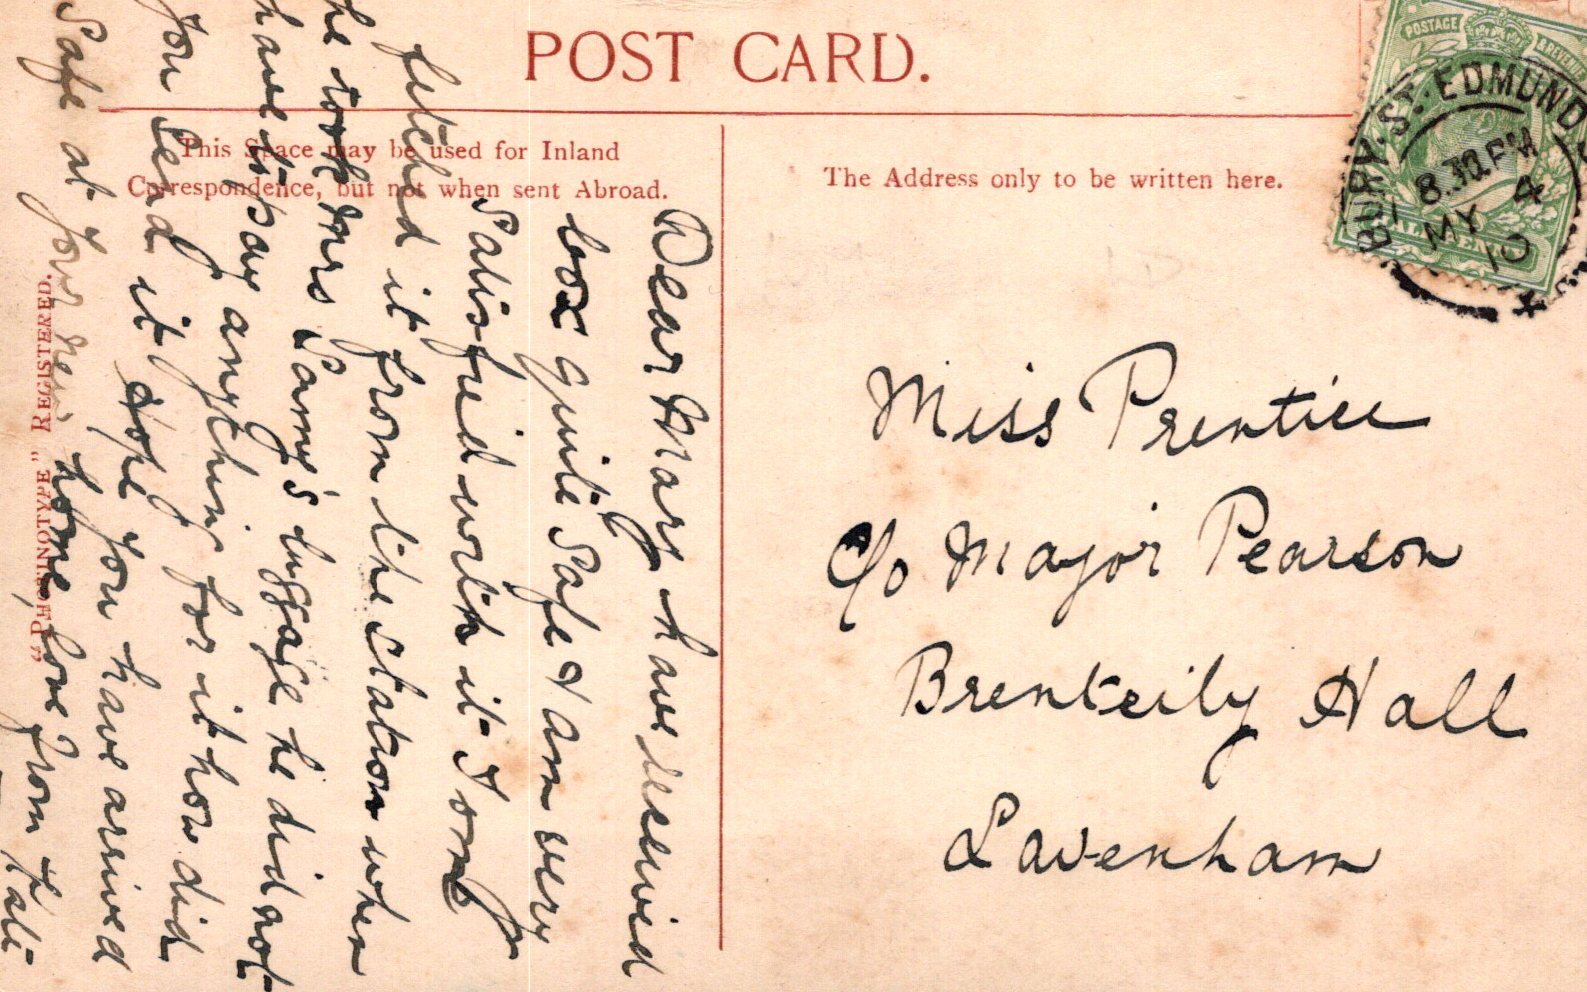 POST CARD.
This Space may be used for Inland
Correspondence, but not when sent Abroad.
The Address only to be written here.
"PHOTINOTYPE" REGISTERED.
POSTAGE & REVENUE
HALFPENNY
BURY ST. EDMUNDS
8.30 PM
MY 4
10
Miss Prentice
c/o Major Pearson
Brenteily Hall
Lavenham
Dear Mary have received
box quite Safe & am very
Satisfied with it I only
fetched it from the station when
he took Mrs Samy's luggage he did not
have to pay anything for it how did
you Send it hope you have arrived
Safe at your new home, love from